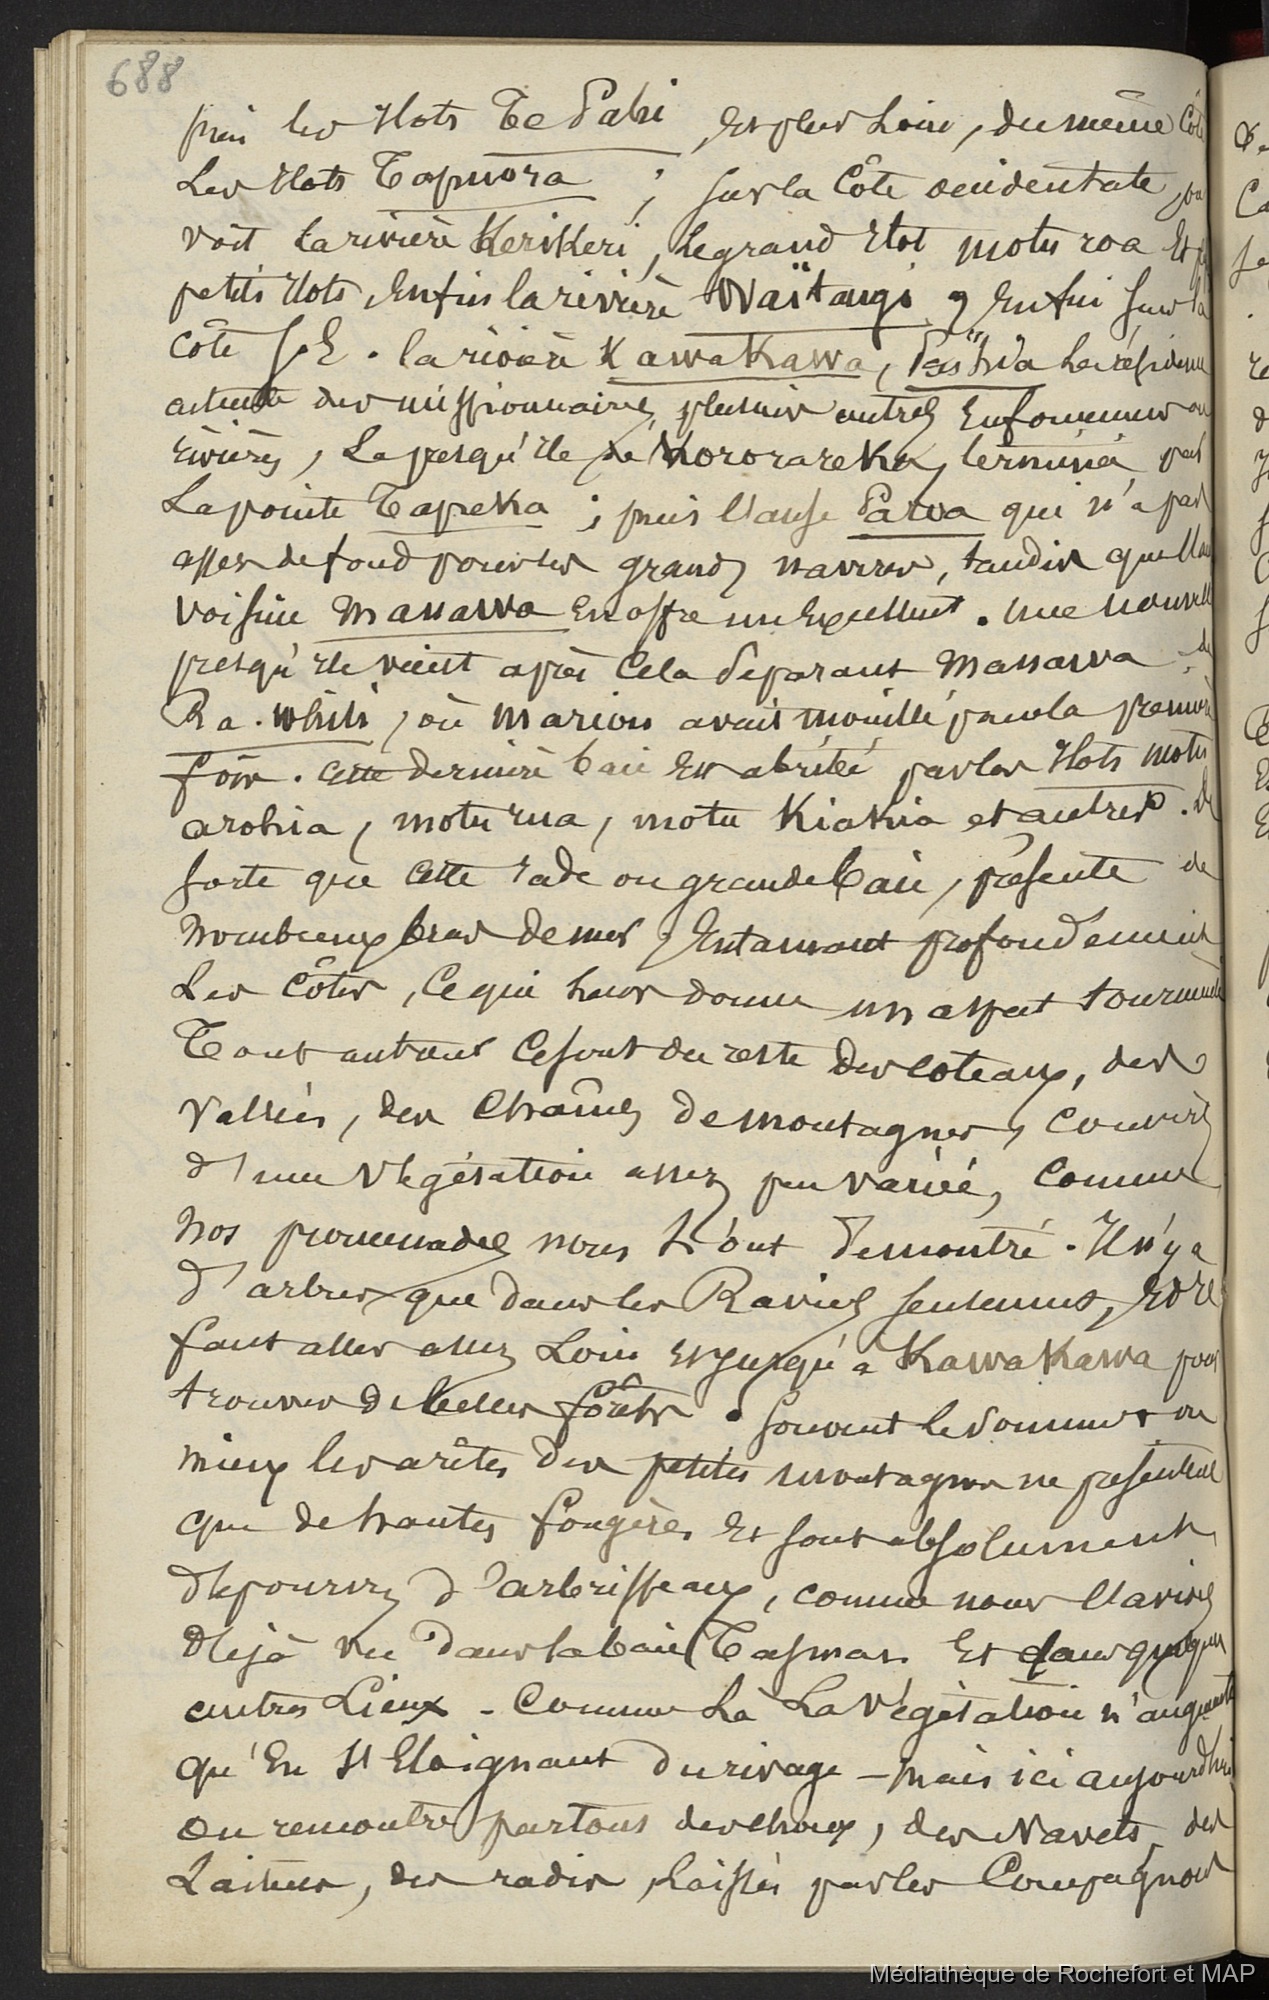 688
puis les Ilots Te Pahi, et plus Loin, du même Côté
Les Ilots Tapuora ; sur la Côte occidentale, on
voit la rivière Kerikeri, Le grand Ilot motu roa et
petits Ilots, Enfin la rivière Waïtangi, Enfin sur la
côte S.E. la rivière Kawakawa, Païhia La résidence
actuelle des missionnaires, plusieurs autres Enfoncemens ou
rivières, La presqu'Ile de Kororareka, terminée par
La pointe Tapeka ; puis l'anse Paroa qui n'a pas
assez de fond pour les grands navires, tandis que
voisine Manawa En offre un Excellent. Une nouvelle
presqu'Ile vient après Cela séparant Manawa de
Ra. Whiti, où Marion avait mouillé pour la première
fois. Cette dernière baie Est abritée par les Ilots motu
arohia, motu rua, motu Kiakia et autres. De
sorte que cette rade ou grande baie, présente de
nombreux bras de mer, Entamant profondément
Les Côtes, Ce qui Leur donne un aspect tourmenté
Tout autour Ce sont du reste des coteaux, des
Vallées, des Chaînes de montagnes, Couverts
d'une Végétation assez peu variée, Comme
Nos promenades nous L'ont démontré. Il n'y a
d'arbres que dans les Ravins seulement, Et il
faut aller assez Loin et jusqu'à Kawakawa pour
trouver de belles forêts. Souvent le sommet ou
mieux les arêtes des petites montagnes ne présentent
que de hautes fougères Et sont absolument
dépourvus d'arbrisseaux, comme nous l'avions
déjà vu dans la baie Tasman Et dans quelques
autres Lieux - Comme Là La Végétation n'augmente
qu'En S'Eloignant du rivage - Mais ici aujourd'hui
On rencontre partout des choux, des Navets, des
Laitues, des radis, Laissés par les Compagnons
Médiathèque de Rochefort et MAP